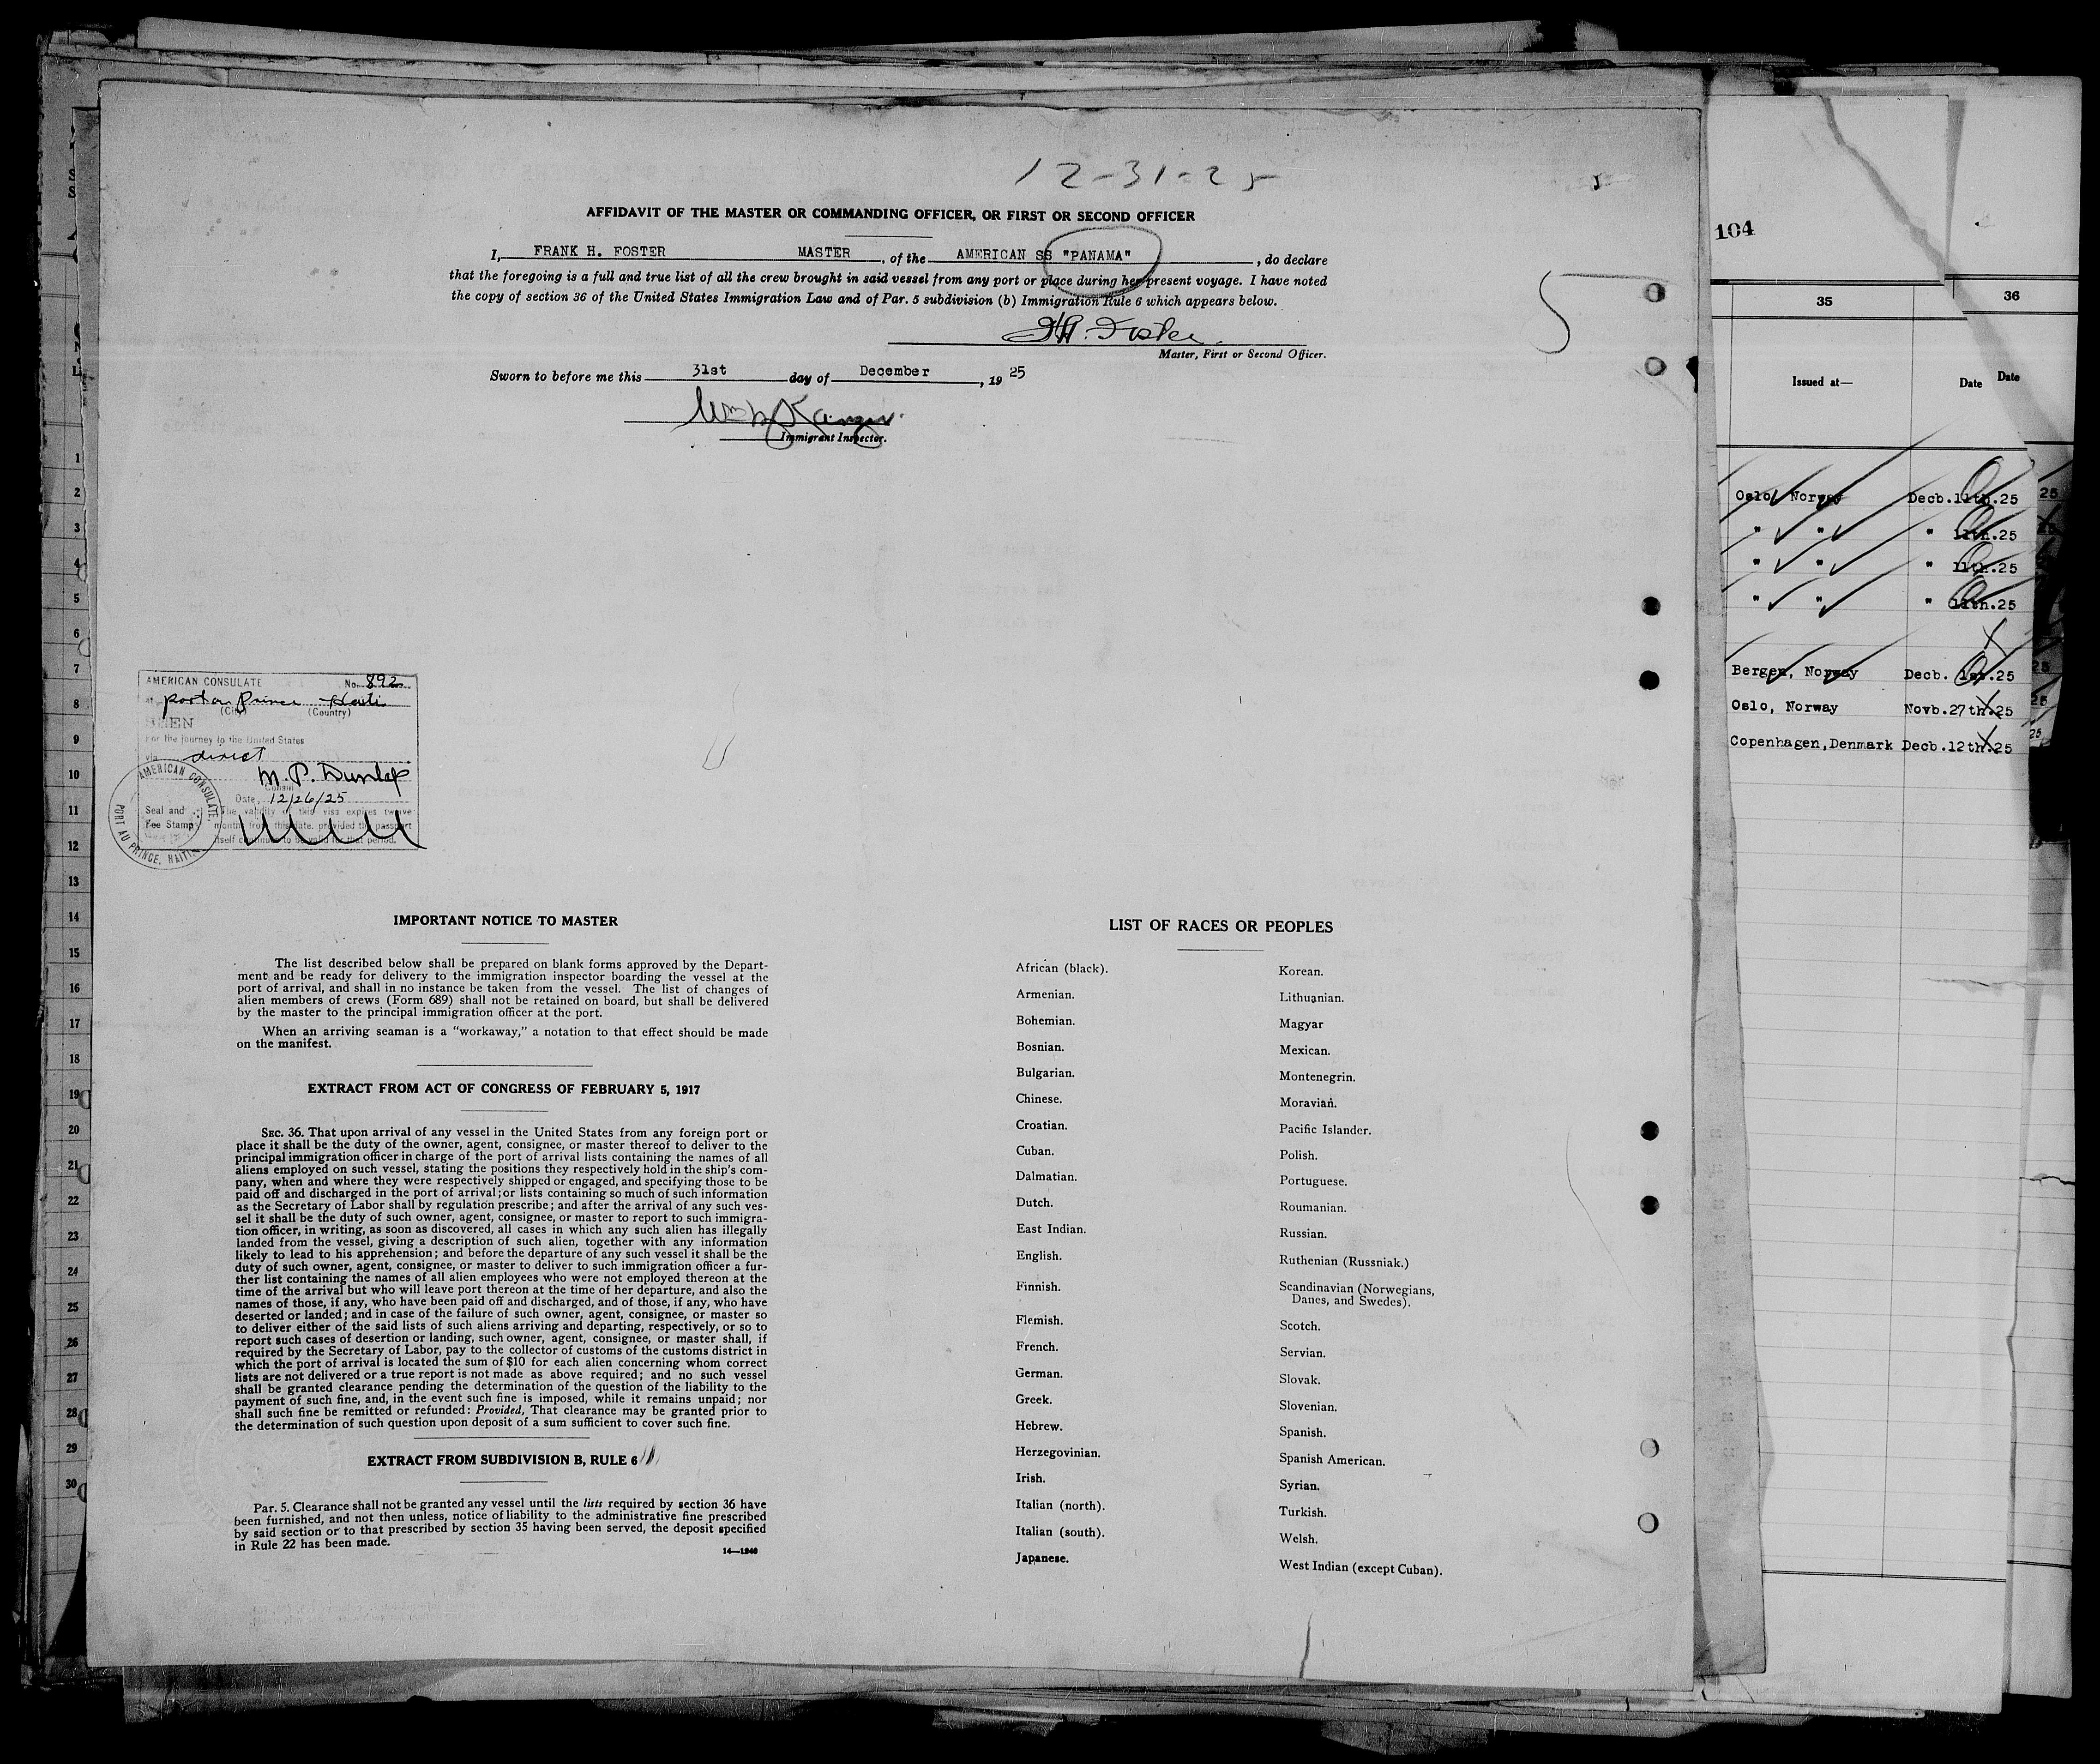 12-31-25
5
AFFIDAVIT OF THE MASTER OR COMMANDING OFFICER, OR FIRST OR SECOND OFFICER
I, FRANK H. FOSTER MASTER, of the AMERICAN SS "PANAMA", do declare
that the foregoing is a full and true list of all the crew brought in said vessel from any port or place during her present voyage. I have noted
the copy of section 36 of the United States Immigration Law and of Par. 5 subdivision (b) Immigration Rule 6 which appears below.
Foster
Master, First or Second Officer.
Sworn to before me this 31st day of December, 19 25
Immigrant Inspector.
5
AMERICAN CONSULATE No. 892
at Port au Prince Haiti
(City) (Country)
SEEN
For the journey to the United States
via direct
M. P. Dunlap
Consul
Date, 12/26/25
Seal and
Fee Stamp
The validity of this visa expires twelve
months from this date, provided the passport
itself continues to be valid for that period.
AMERICAN CONSULATE,
PORT AU PRINCE, HAITI
IMPORTANT NOTICE TO MASTER
The list described below shall be prepared on blank forms approved by the Depart-
ment and be ready for delivery to the immigration inspector boarding the vessel at the
port of arrival, and shall in no instance be taken from the vessel. The list of changes of
alien members of crews (Form 689) shall not be retained on board, but shall be delivered
by the master to the principal immigration officer at the port.
When an arriving seaman is a "workaway," a notation to that effect should be made
on the manifest.
EXTRACT FROM ACT OF CONGRESS OF FEBRUARY 5, 1917
SEC. 36. That upon arrival of any vessel in the United States from any foreign port or
place it shall be the duty of the owner, agent, consignee, or master thereof to deliver to the
principal immigration officer in charge of the port of arrival lists containing the names of all
aliens employed on such vessel, stating the positions they respectively hold in the ship's com-
pany, when and where they were respectively shipped or engaged, and specifying those to be
paid off and discharged in the port of arrival; or lists containing so much of such information
as the Secretary of Labor shall by regulation prescribe; and after the arrival of any such ves-
sel it shall be the duty of such owner, agent, consignee, or master to report to such immigra-
tion officer, in writing, as soon as discovered, all cases in which any such alien has illegally
landed from the vessel, giving a description of such alien, together with any information
likely to lead to his apprehension; and before the departure of any such vessel it shall be the
duty of such owner, agent, consignee, or master to deliver to such immigration officer a fur-
ther list containing the names of all alien employees who were not employed thereon at the
time of the arrival but who will leave port thereon at the time of her departure, and also the
names of those, if any, who have been paid off and discharged, and of those, if any, who have
deserted or landed; and in case of the failure of such owner, agent, consignee, or master so
to deliver either of the said lists of such aliens arriving and departing, respectively, or so to
report such cases of desertion or landing, such owner, agent, consignee, or master shall, if
required by the Secretary of Labor, pay to the collector of customs of the customs district in
which the port of arrival is located the sum of $10 for each alien concerning whom correct
lists are not delivered or a true report is not made as above required; and no such vessel
shall be granted clearance pending the determination of the question of the liability to the
payment of such fine, and, in the event such fine is imposed, while it remains unpaid; nor
shall such fine be remitted or refunded: Provided, That clearance may be granted prior to
the determination of such question upon deposit of a sum sufficient to cover such fine.
EXTRACT FROM SUBDIVISION B, RULE 6
Par. 5. Clearance shall not be granted any vessel until the lists required by section 36 have
been furnished, and not then unless, notice of liability to the administrative fine prescribed
by said section or to that prescribed by section 35 having been served, the deposit specified
in Rule 22 has been made.
14—1240
LIST OF RACES OR PEOPLES
African (black).
Armenian.
Bohemian.
Bosnian.
Bulgarian.
Chinese.
Croatian.
Cuban.
Dalmatian.
Dutch.
East Indian.
English.
Finnish.
Flemish.
French.
German.
Greek.
Hebrew.
Herzegovinian.
Irish.
Italian (north).
Italian (south).
Japanese.
Korean.
Lithuanian.
Magyar
Mexican.
Montenegrin.
Moravian.
Pacific Islander.
Polish.
Portuguese.
Roumanian.
Russian.
Ruthenian (Russniak.)
Scandinavian (Norwegians,
Danes, and Swedes).
Scotch.
Servian.
Slovak.
Slovenian.
Spanish.
Spanish American.
Syrian.
Turkish.
Welsh.
West Indian (except Cuban).
1
2
3
4
5
6
7
8
9
10
11
12
13
14
15
16
17
18
19
20
21
22
23
24
25
26
27
28
29
30
104
35 36
Issued at— Date Date
Oslo, Norway Decb.11th.25 25
" " " 11th.25
" " " 11th.25
" " " 11th.25
Bergen, Norway Decb. 1st.25 25
Oslo, Norway Novb.27th.25 25
Copenhagen,Denmark Decb.12th.25 25